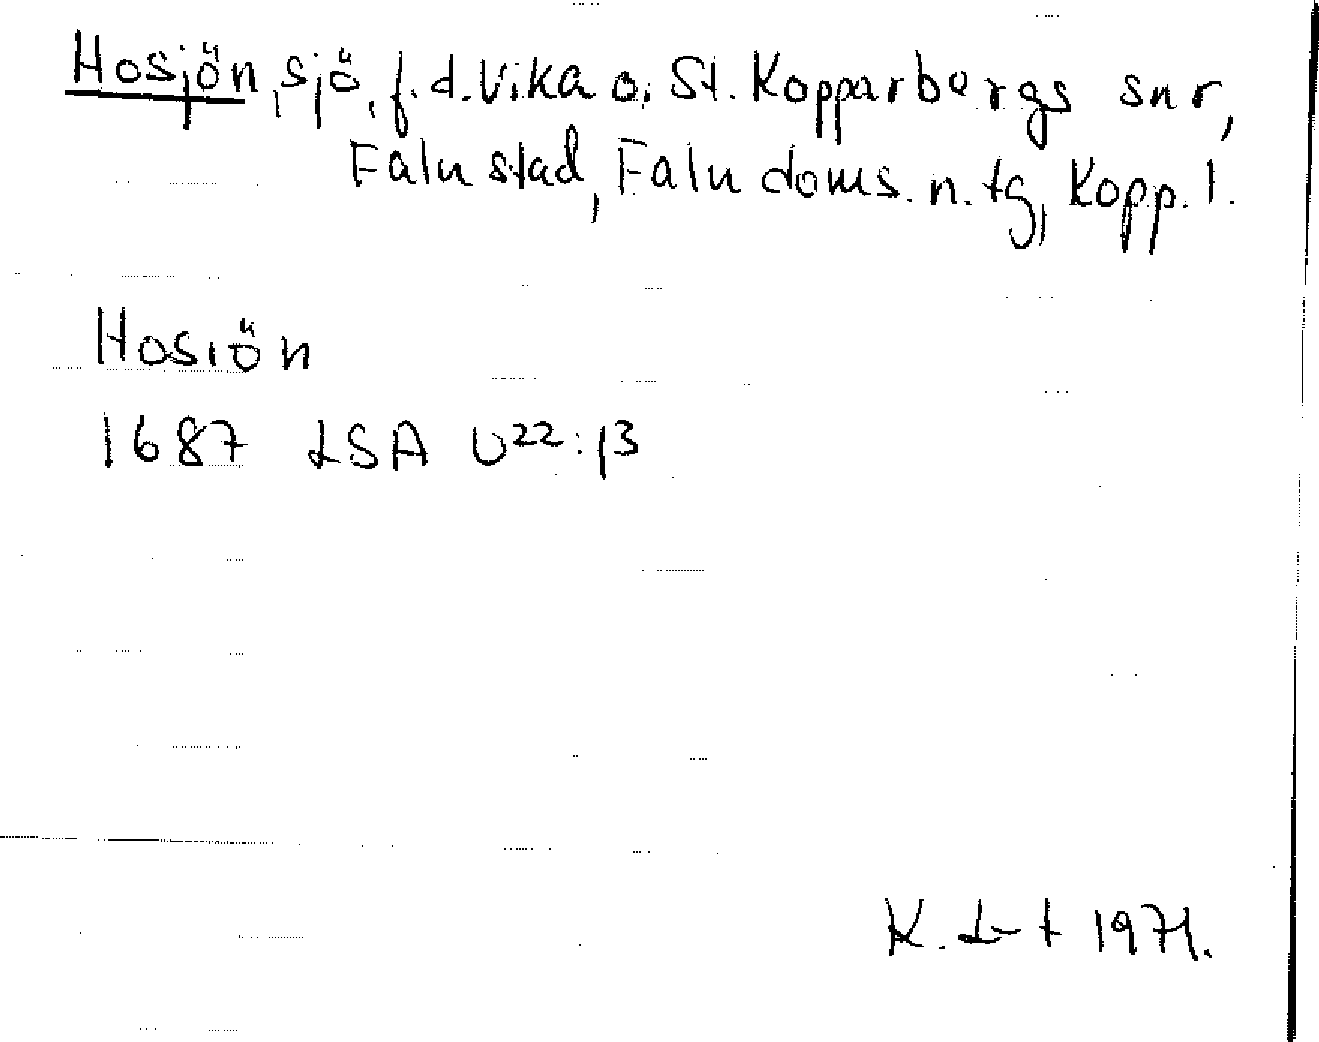 Hosjön, sjö, f.d. Vika o. St. Kopparbergs snr,
Falu stad, Falu doms. n. tg, Kopp. l.
Hosiön
1687 LSA U22:13
K. L-t 1971.